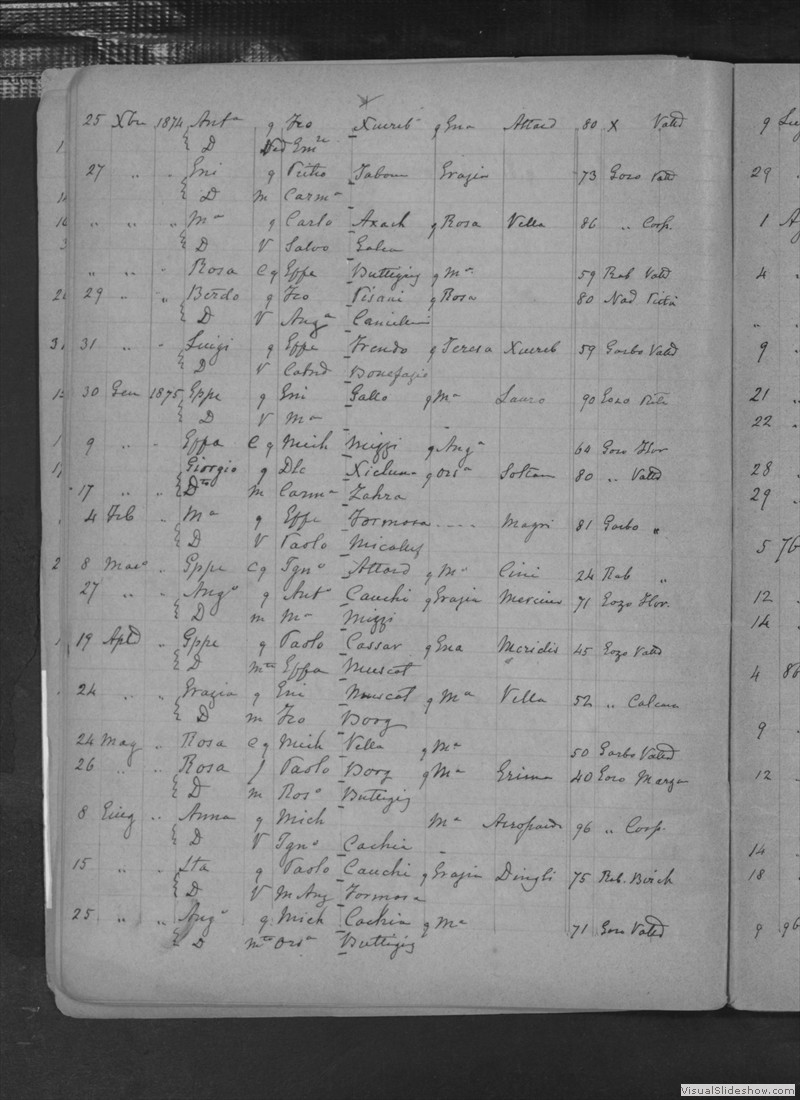 25 Xbre 1874 Anta q Fco Xuereb q Gna Attard 80 X Vated
1 D Ved Emle
27 " " Gni q Pietro Tabone Grazia 73 Gozo Vated
D m Carma
" " " Ma q Carlo Axach q Rosa Vella 86 " Cosp.
3 D V Salvo Galea
" " " Rosa C q Gffa Buttigieg q Ma 59 Rab Vated
29 " " Berdo q Fco Pisani q Rosa 80 Nad
D V Anga Camilleri
31 " " Luigi q Gffe Frendo q Teresa Xuereb 59 Garbo Vated
D V Catnd Bonefazio
30 Gen 1875 Gppe q Gni Galea q Ma Lauro 90 Gozo
D V Ma
1 9 " " Gffa C q Mich Mizzi q Anga 64 Gozo Flor
Giorgio q Dlc Xicluna q Orsa Soltan 80 " Vated
17 " " Dto m Carma Zahra
4 Feb " Ma q Gffe Formosa .... Magri 81 Garbo "
D V Paolo Micalef
2 8 Marzo " Gppe C q Igno Attard q Ma Cini 24 Rab "
27 " " Ango q Anto Cauchi q Grazia Mercieca 71 Gozo Flor.
D m Ma Mizzi
19 Aple " Gppe q Paolo Cassar q Gna 45 Gozo Vated
D mto Gffa Muscat
24 " " Grazia q Gni Muscat q Ma Vella 52 " Calcara
D m Fco Borg
24 Mag " Rosa C q Mich Vella q Ma 50 Garbo Vated
26 " " Rosa f Paolo Borg q Ma Grima 40 Gozo Marza
D m Roso Buttigieg
8 Giug " Anna q Mich Ma 96 " Cosp.
D V Igno Cachia
15 " " Lta q Paolo Cauchi q Grazia Dingli 75 Rab. Birch
D V M Ang Formosa
25 " " Ango q Mich Cachia q Ma 71 Gozo Vated
D mto Orsa Buttigieg
9
29
1
4
"
9
21
22
28
29
5 76
12
14
4 86
9
12
14
18
9 96
VisualSlideshow.com